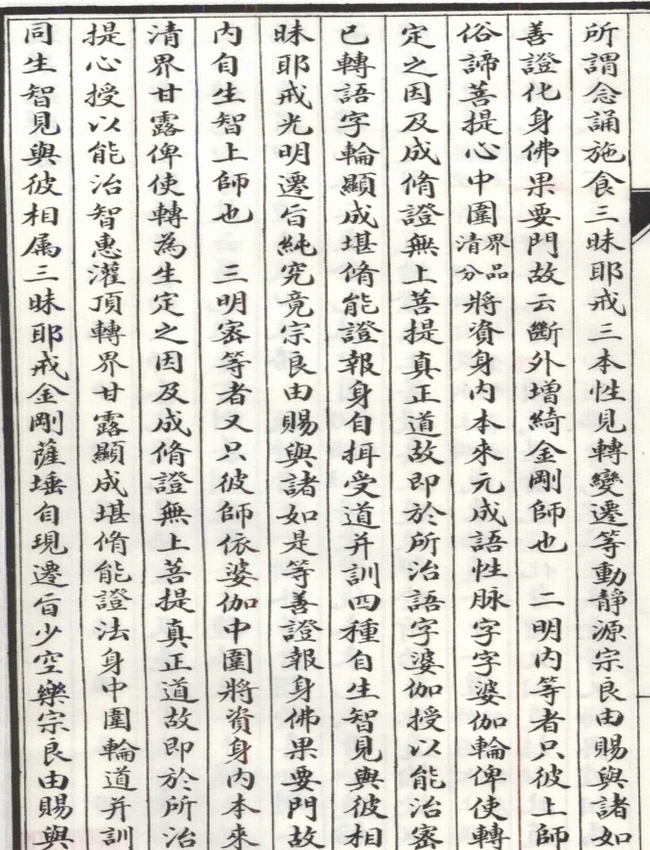 所謂念誦施食三昧耶戒三本性見轉變遷等動靜源宗良由賜與諸如
善證化身佛果要門故云斷外增綺金剛師也　二明內等者只彼上師
俗諦菩提心中圍清界分品將資身內本來元成語性脉字字婆伽輪俾使轉
定之因及成脩證無上菩提真正道故即於所治語字婆伽授以能治密
已轉語字輪顯成堪脩能證報身自揖受道并訓四種自生智見與彼相
昧耶戒光明遷旨純究竟宗良由賜與諸如是等善證報身佛果要門故
內自生智上師也　三明密等者又只彼師依婆伽中圍將資身內本來
清界甘露俾使轉為生定之因及成脩證無上菩提真正道故即於所治
提心授以能治智惠灌頂轉界甘露顯成堪脩能證法身中圍輪道并訓
同生智見與彼相属三昧耶戒金剛薩埵自現遷旨少空樂宗良由賜與